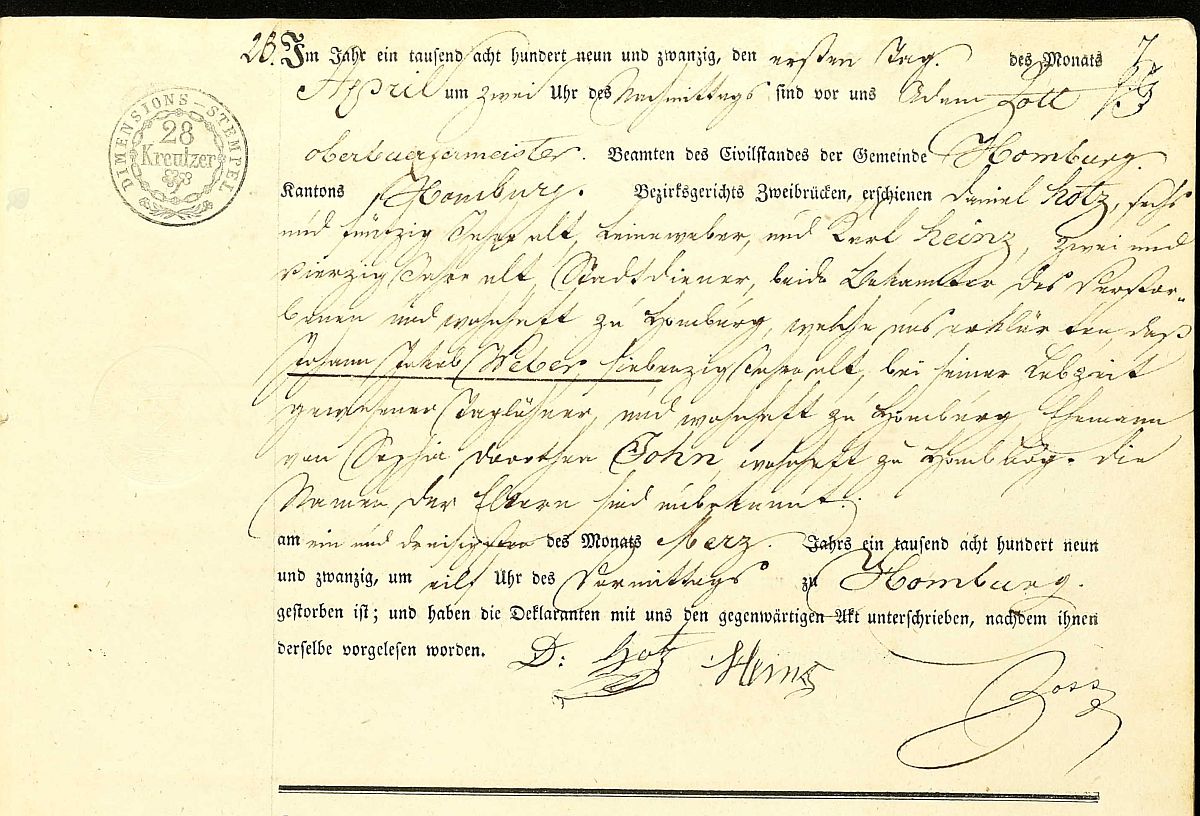 28.
Im Jahr ein tausend acht hundert neun und zwanzig, den ersten Tag. des Monats
April um zwei Uhr des Nachmittags sind vor uns Adam
DIMENSIONS-STEMPEL
28
Kreutzer
oberbuergermeister. Beamten des Civilstandes der Gemeinde Homburg
Kantons Homburg. Bezirksgerichts Zweibrücken, erschienen Daniel Hotz, sechs
und fünfzig Jahre alt, Leineweber, und Karl Heinz, zwei und
vierzig Jahre alt, Stadtdiener, beide Bekannter des Verstor-
benen und wohnhaft zu Homburg, welche uns erklär ten, daß
Johann Jakob Weber siebenzig Jahre alt, bei seiner Lebzeit
gewesener Taglöhner, und wohnhaft zu Homburg, Ehemann
von Sophia Dorothea John wohnhaft zu Homburg. die
Namen der Eltern sind unbekannt.
am ein und dreisigsten des Monats Merz. Jahrs ein tausend acht hundert neun
und zwanzig, um eilf Uhr des Vormittags zu Homburg.
gestorben ist; und haben die Deklaranten mit uns den gegenwärtigen Akt unterschrieben, nachdem ihnen
derselbe vorgelesen worden. D: Hotz Heinz